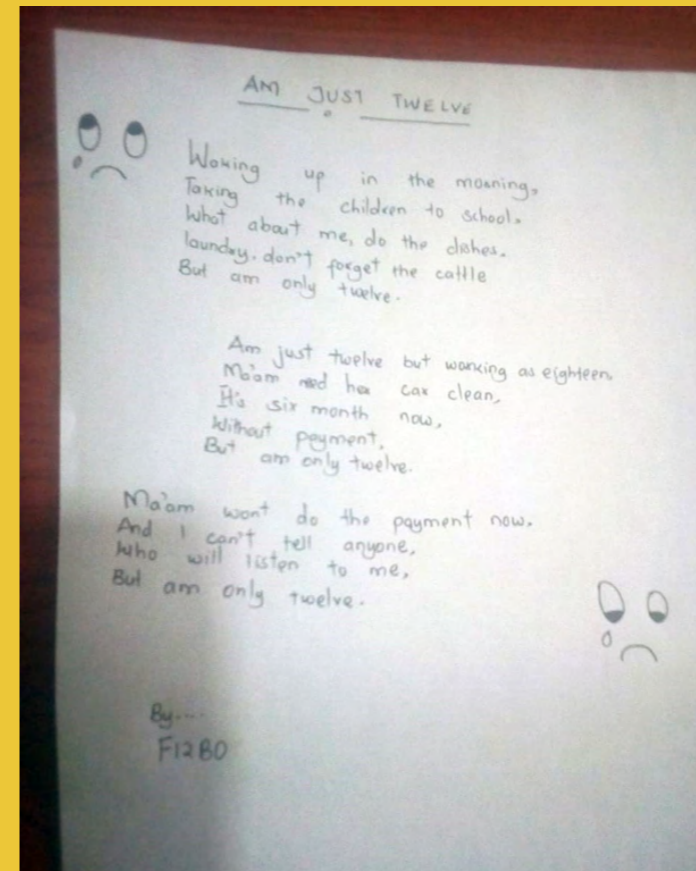 AM JUST TWELVE
Waking up in the morning,
Taking the children to school,
What about me, do the dishes.
laundry. don't forget the cattle
But am only twelve.
Am just twelve but working as eighteen.
Ma'am need her car clean,
It's six month now,
Without peyment,
But am only twelve.
Ma'am wont do the payment now.
And I can't tell anyone,
Who will listen to me,
But am only twelve.
By....
F12B0